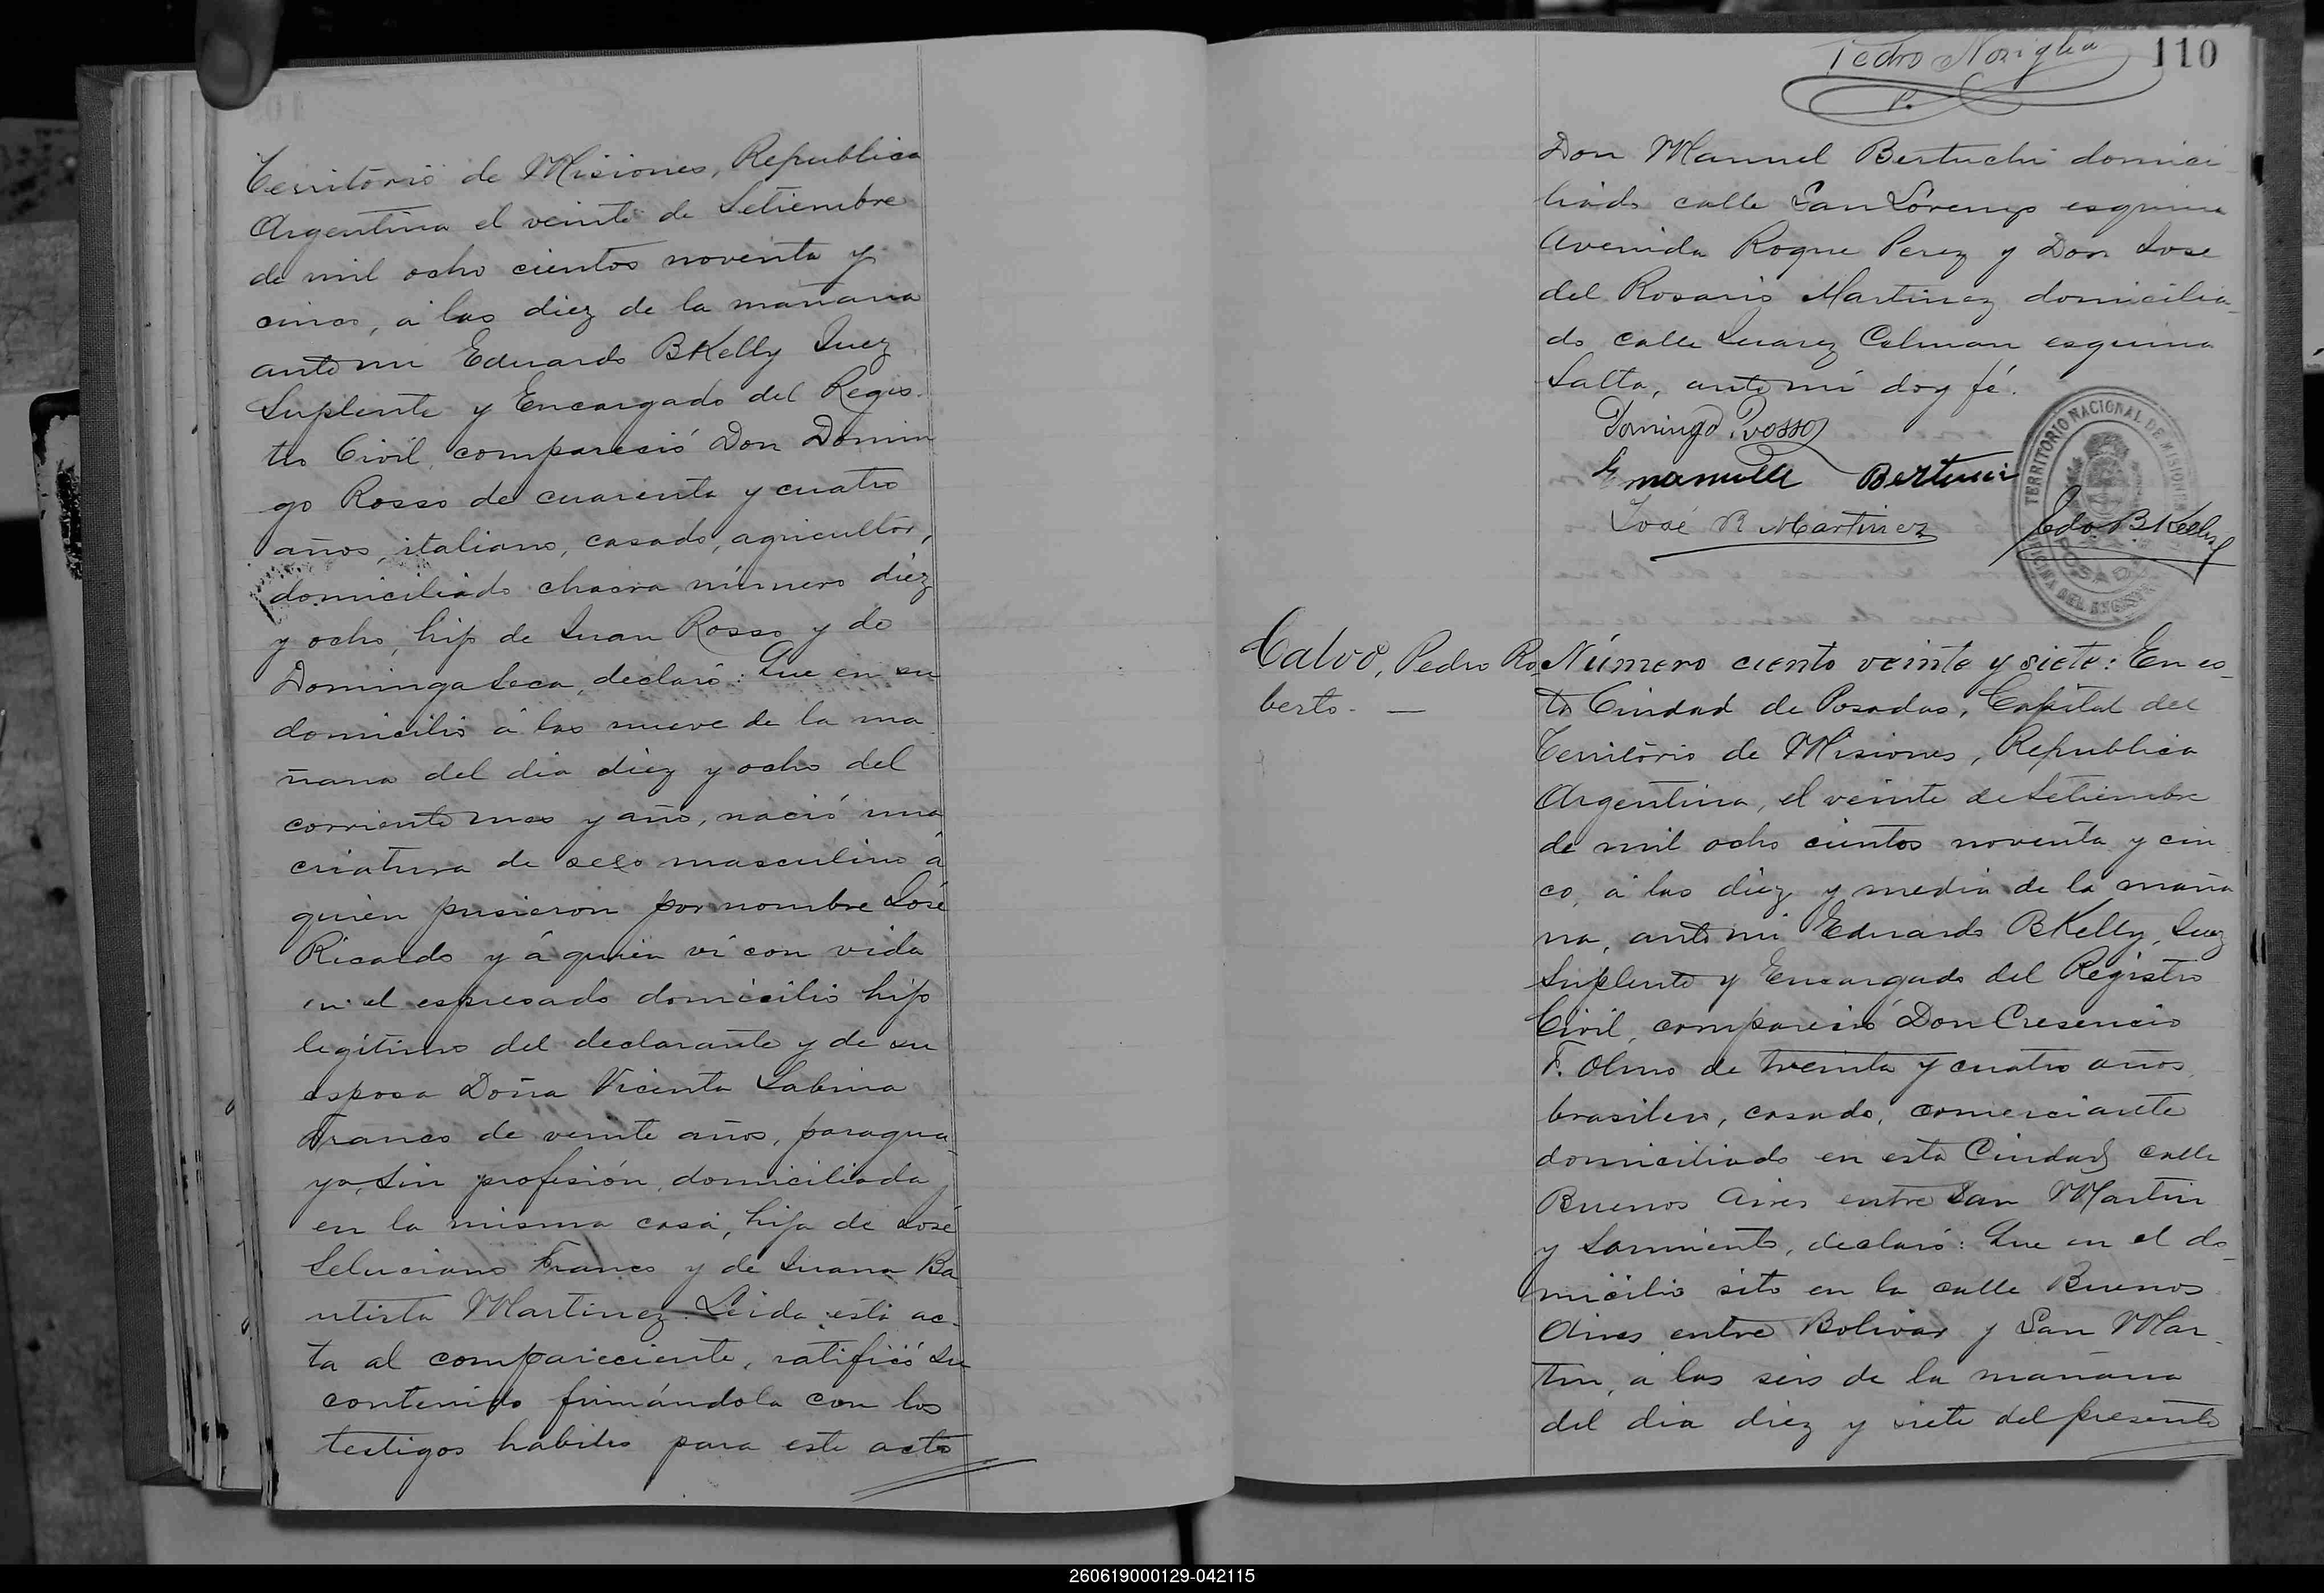 Territorio de Misiones, Republica
Argentina el veinte de Setiembre
de mil ocho cientos noventa y
cinco, á las diez de la mañana
ante mi Eduardo BKelly Juez
Suplente y Encargado del Regis-
tro Civil, compareció Don Domin
go Rosso de cuarenta y cuatro
años, italiano, casado, agricultor,
domiciliado chacra número diez
y ocho, hijo de Juan Rosso y de
Dominga Seca, declaró: Que en su
domicilio á las nueve de la ma
ñana del dia diez y ocho del
corriente mes y año, nació una
criatura de sexo masculino á
quien pusieron por nombre José
Ricardo y á quien ví con vida
en el espresado domicilio hijo
legítimo del declarante y de su
esposa Doña Vicenta Sabina
Franco de veinte años, paragua-
ya, sin profesión, domiciliada
en la misma casa, hija de José
Seluciano Franco y de Juana Ba
utista Martinez. Leida esta ac-
ta al compareciente, ratificó su
contenido firmándola con los
testigos habiles para este acto
Pedro Noriglia 110
Don Manuel Bertuchi domici
liado calle San Lorenzo esquina
Avenida Roque Perez y Don Jose
del Rosario Martinez domicilia-
do calle Juarez Celman esquina
Salta, ante mí doy fé.
Domingo Rosso
Emanuele Bertucci
José R Martinez Edo. BKelly
TERRITORIO NACIONAL DE MISIONES
POSADAS
OFICINA DEL REGISTRO
Calvo, Pedro Ro-
berto. —
Número ciento veinte y siete: En es-
ta Ciudad de Posadas, Capital del
Territorio de Misiones, Republica
Argentina, el veinte de Setiembre
de mil ocho cientos noventa y cin
co, á las diez y media de la maña
na, ante mi Eduardo BKelly, Juez
Suplente y Encargado del Registro
Civil, compareció Don Cresencio
F. Olmo de treinta y cuatro años,
brasilero, casado, comerciante
domiciliado en esta Ciudad calle
Buenos Aires entre San Martin
y Sarmiento, declaró: Que en el do-
micilio sito en la calle Buenos
Aires entre Bolivar y San Mar-
tin, á las seis de la mañana
del dia diez y siete del presente
260619000129-042115